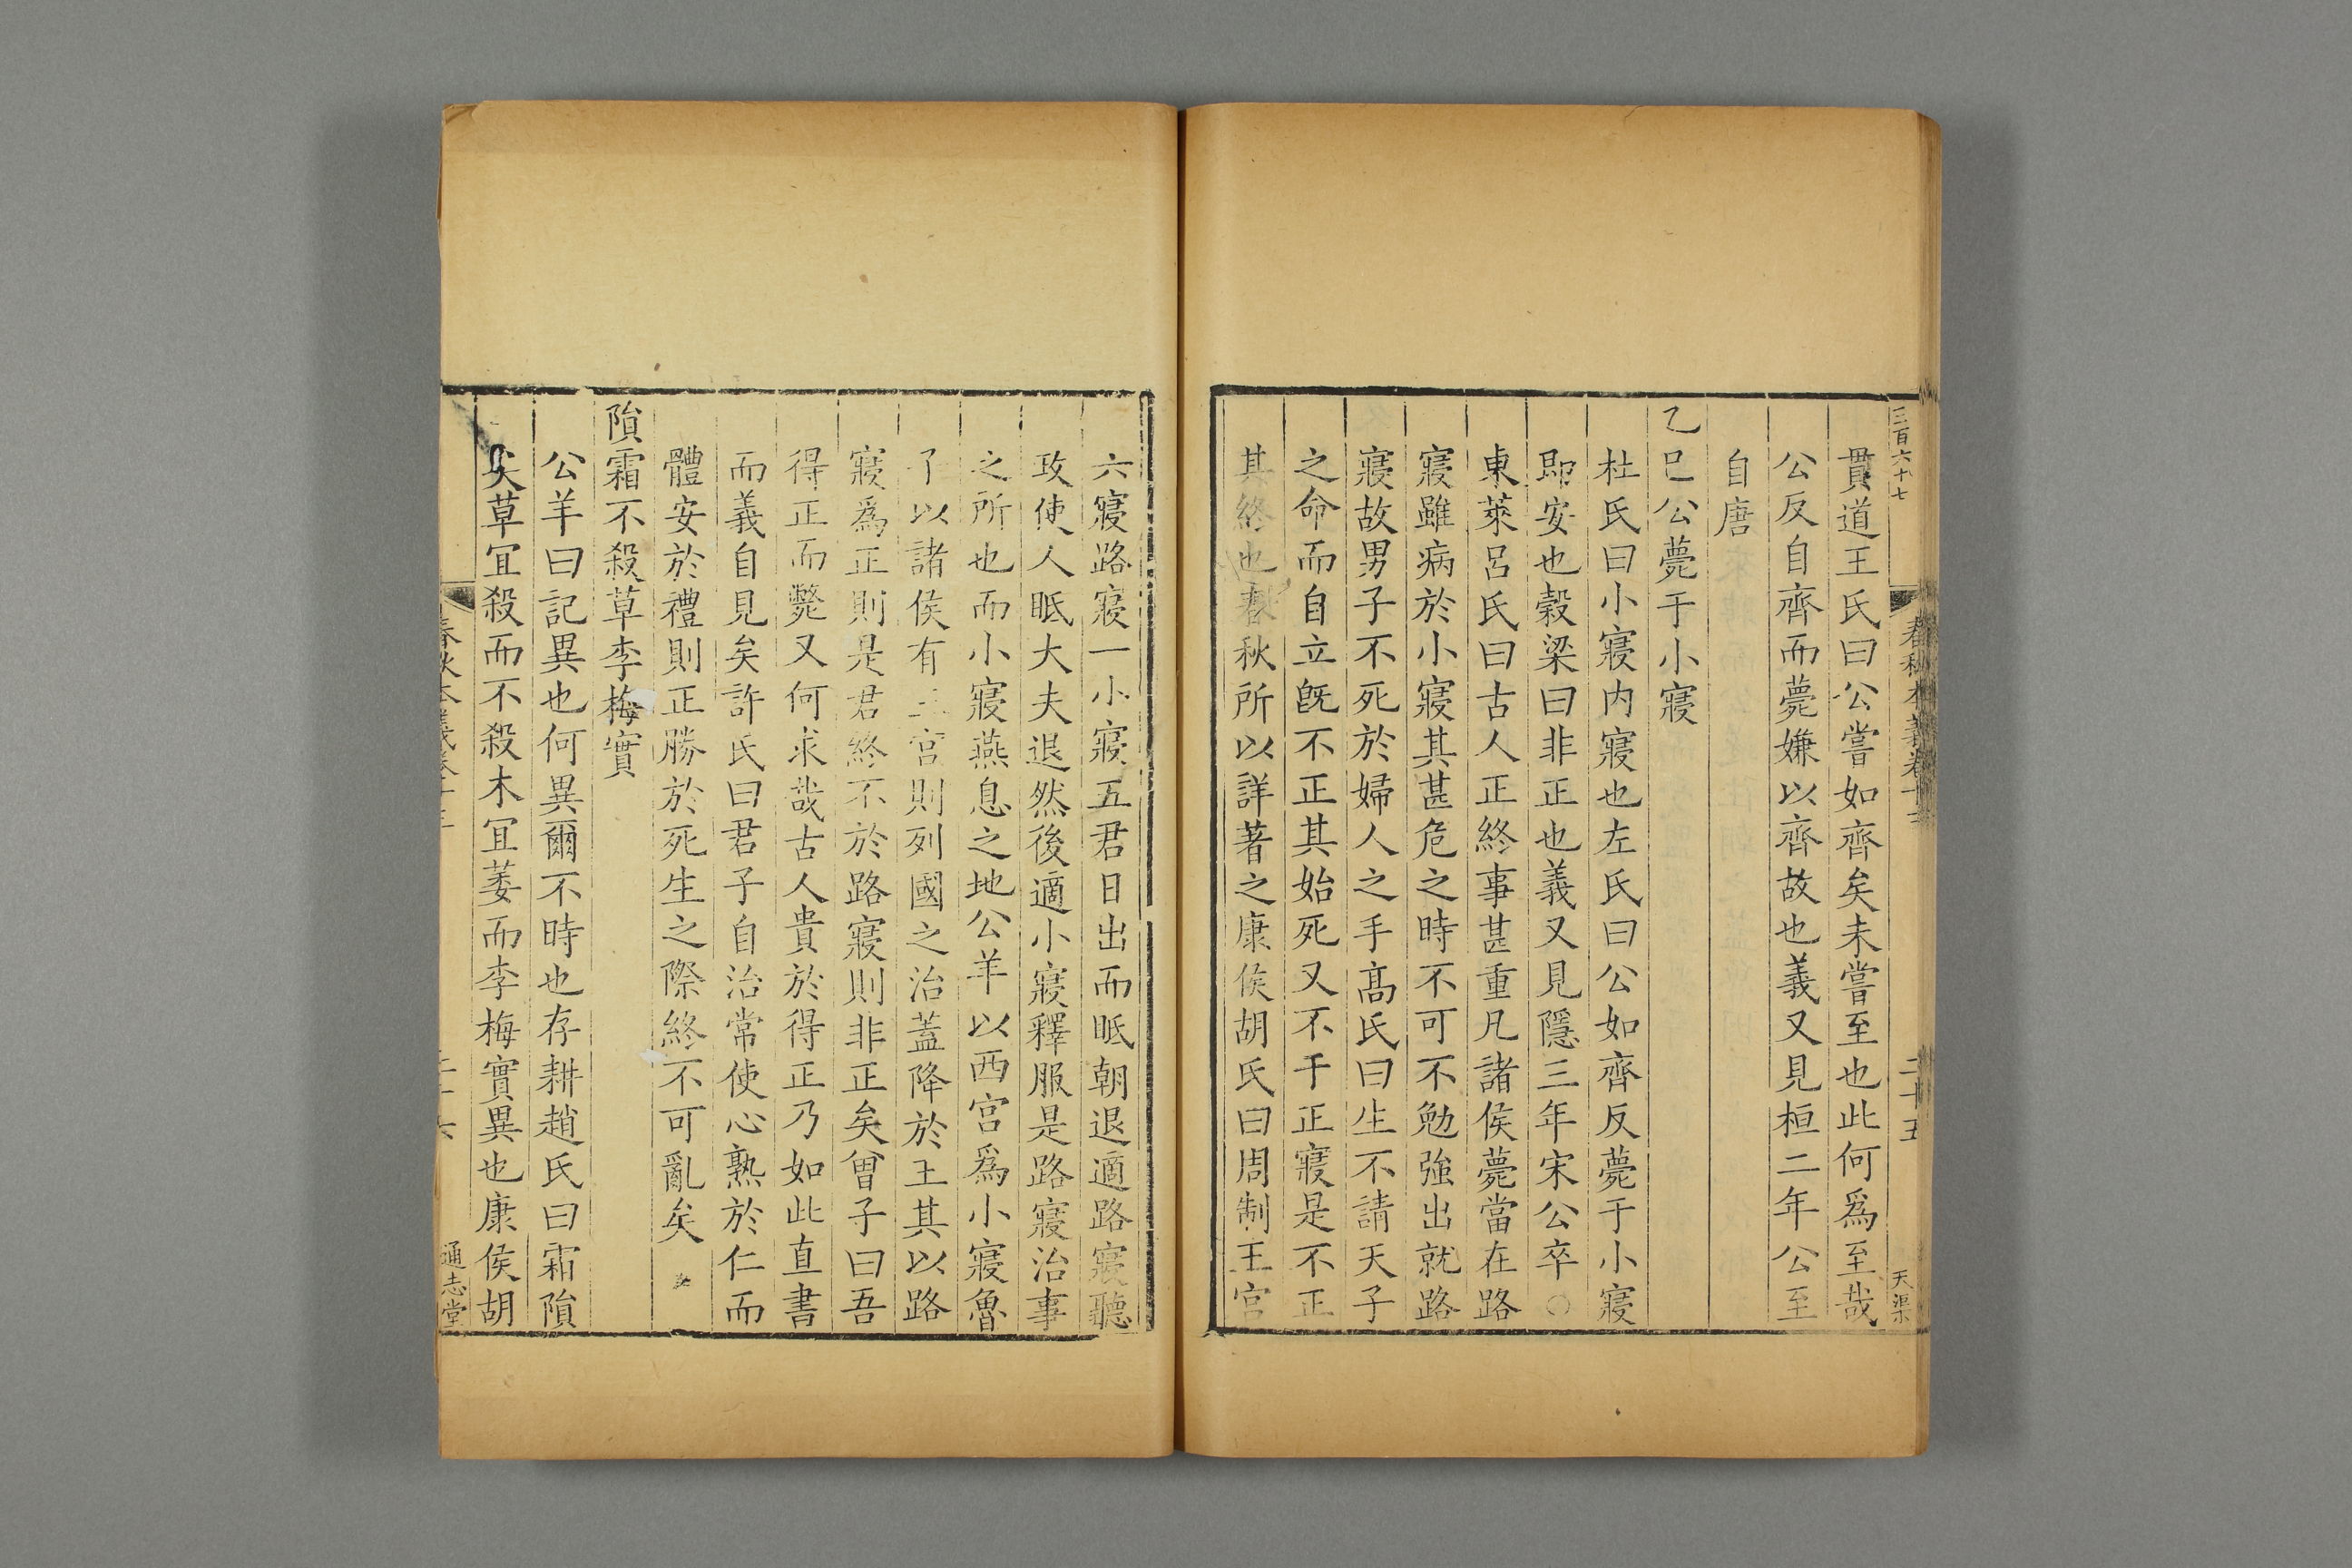 三百六十七
春秋本義卷十三
二十五
天渠
貫道王氏曰公嘗如齊矣未嘗至也此何爲至哉
公反自齊而薨嫌以齊故也義又見桓二年公至
自唐
乙巳公薨于小寢
杜氏曰小寢内寢也左氏曰公如齊反薨于小寢
即安也穀梁曰非正也義又見隱三年宋公卒○
東萊呂氏曰古人正終事甚重凡諸侯薨當在路
寢雖病於小寢其甚危之時不可不勉強出就路
寢故男子不死於婦人之手髙氏曰生不請天子
之命而自立旣不正其始死又不于正寢是不正
其終也春秋所以詳著之康侯胡氏曰周制王宫
六寢路寢一小寢五君日出而眂朝退適路寢聽
政使人眂大夫退然後適小寢釋服是路寢治事
之所也而小寢燕息之地公羊以西宫爲小寢魯
子以諸侯有三宫則列國之治蓋降於王其以路
寢爲正則是君終不於路寢則非正矣曾子曰吾
得正而斃又何求哉古人貴於得正乃如此直書
而義自見矣許氏曰君子自治常使心熟於仁而
體安於禮則正勝於死生之際終不可亂矣
隕霜不殺草李梅實
公羊曰記異也何異爾不時也存耕趙氏曰霜隕
矣草冝殺而不殺木冝萎而李梅實異也康侯胡
春秋本義卷十三
二十六
通志堂